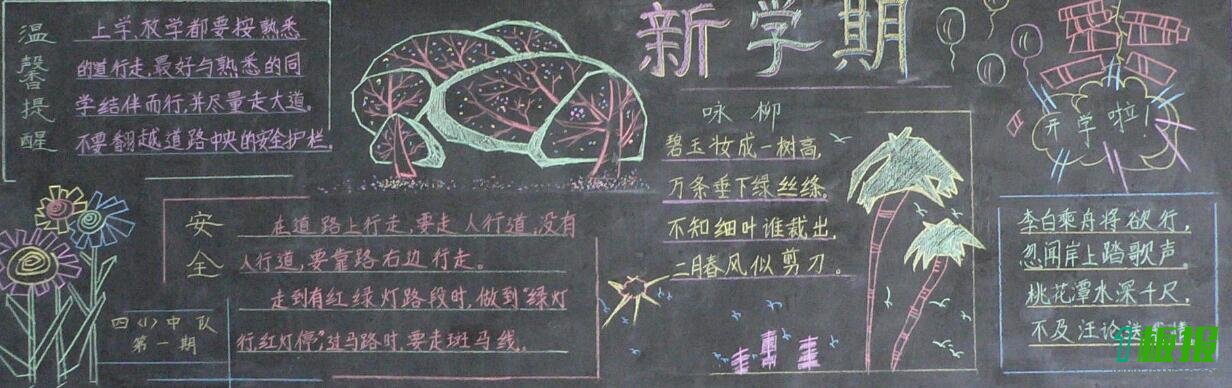 温馨提醒
上学,放学都要按熟悉
的道行走,最好与熟悉的同
学结伴而行,并尽量走大道,
不要翻越道路中央的安全护栏。
安全
在道路上行走,要走人行道,没有
人行道,要靠路右边行走。
走到有红绿灯路段时,做到“绿灯
行,红灯停”,过马路时,要走斑马线。
四(1)中队
第一期
新学期
咏柳
碧玉妆成一树高,
万条垂下绿丝绦,
不知细叶谁裁出,
二月春风似剪刀。
开学啦!
李白乘舟将欲行,
忽闻岸上踏歌声。
桃花潭水深千尺,
不及汪论送
板报